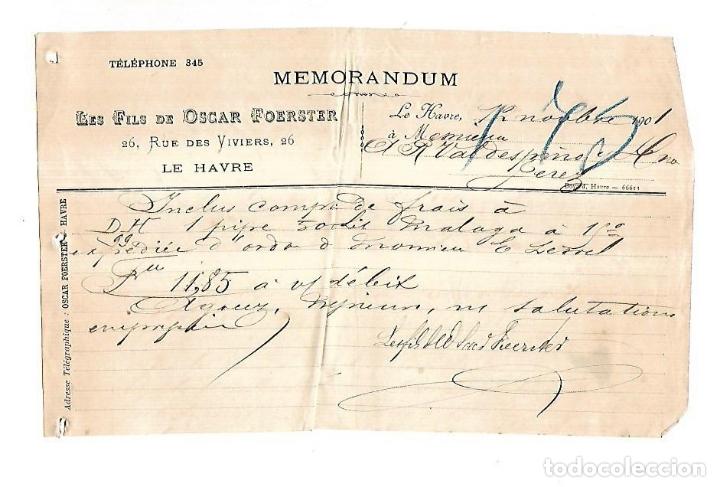 TÉLÉPHONE 345
MEMORANDUM
LES FILS DE OSCAR FOERSTER
26, RUE DES VIVIERS, 26
LE HAVRE
Le Havre, 12 novbre 1901
à Messieurs
A R Valdespino &
Jerez
Havre — 66611
Inclus compte de frais à
D H 1 pipe Malaga à
expédiée d'ordre d Monsieur
11,85 à v/ débit
Agréez, Messieurs, n/ salutations
Les fils de Oscar Foerster
Adresse Télégraphique : OSCAR FOERSTER — HAVRE
todocoleccion